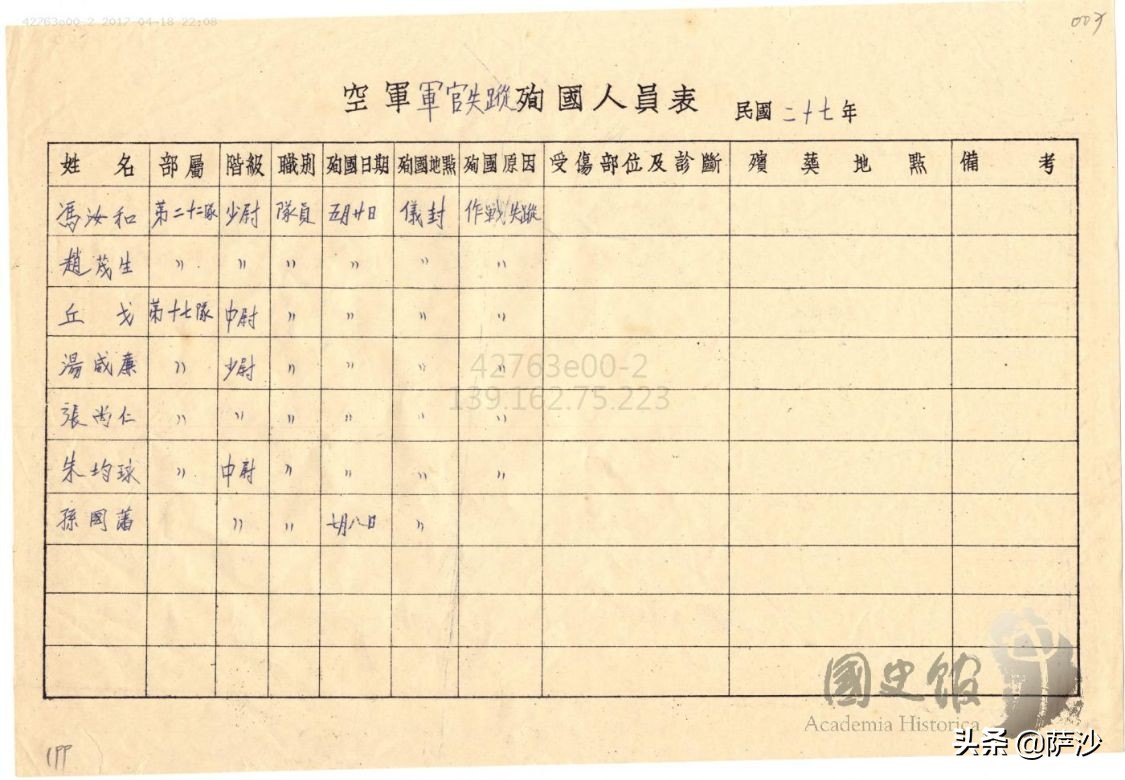 42763e00-2 2017-04-18 22:08
空軍軍官失蹤殉國人員表 民國二十七年
姓名 部屬 階級 職別 殉國日期 殉國地點 殉國原因 受傷部位及診斷 殯葬地點 備考
馮汝和 第二十二隊 少尉 隊員 五月廿日 儀封 作戰失蹤
趙茂生 〃 〃 〃 〃 〃 〃
丘戈 第十七隊 中尉 〃 〃 〃 〃
湯威廉 〃 少尉 〃 〃 〃 〃
張尚仁 〃 〃 〃 〃 〃 〃
朱均球 〃 中尉 〃 〃 〃 〃
孫國藩 〃 〃 七月八日 〃
42763e00-2
139.162.75.223
國史館
Academia Historica
头条 @萨沙